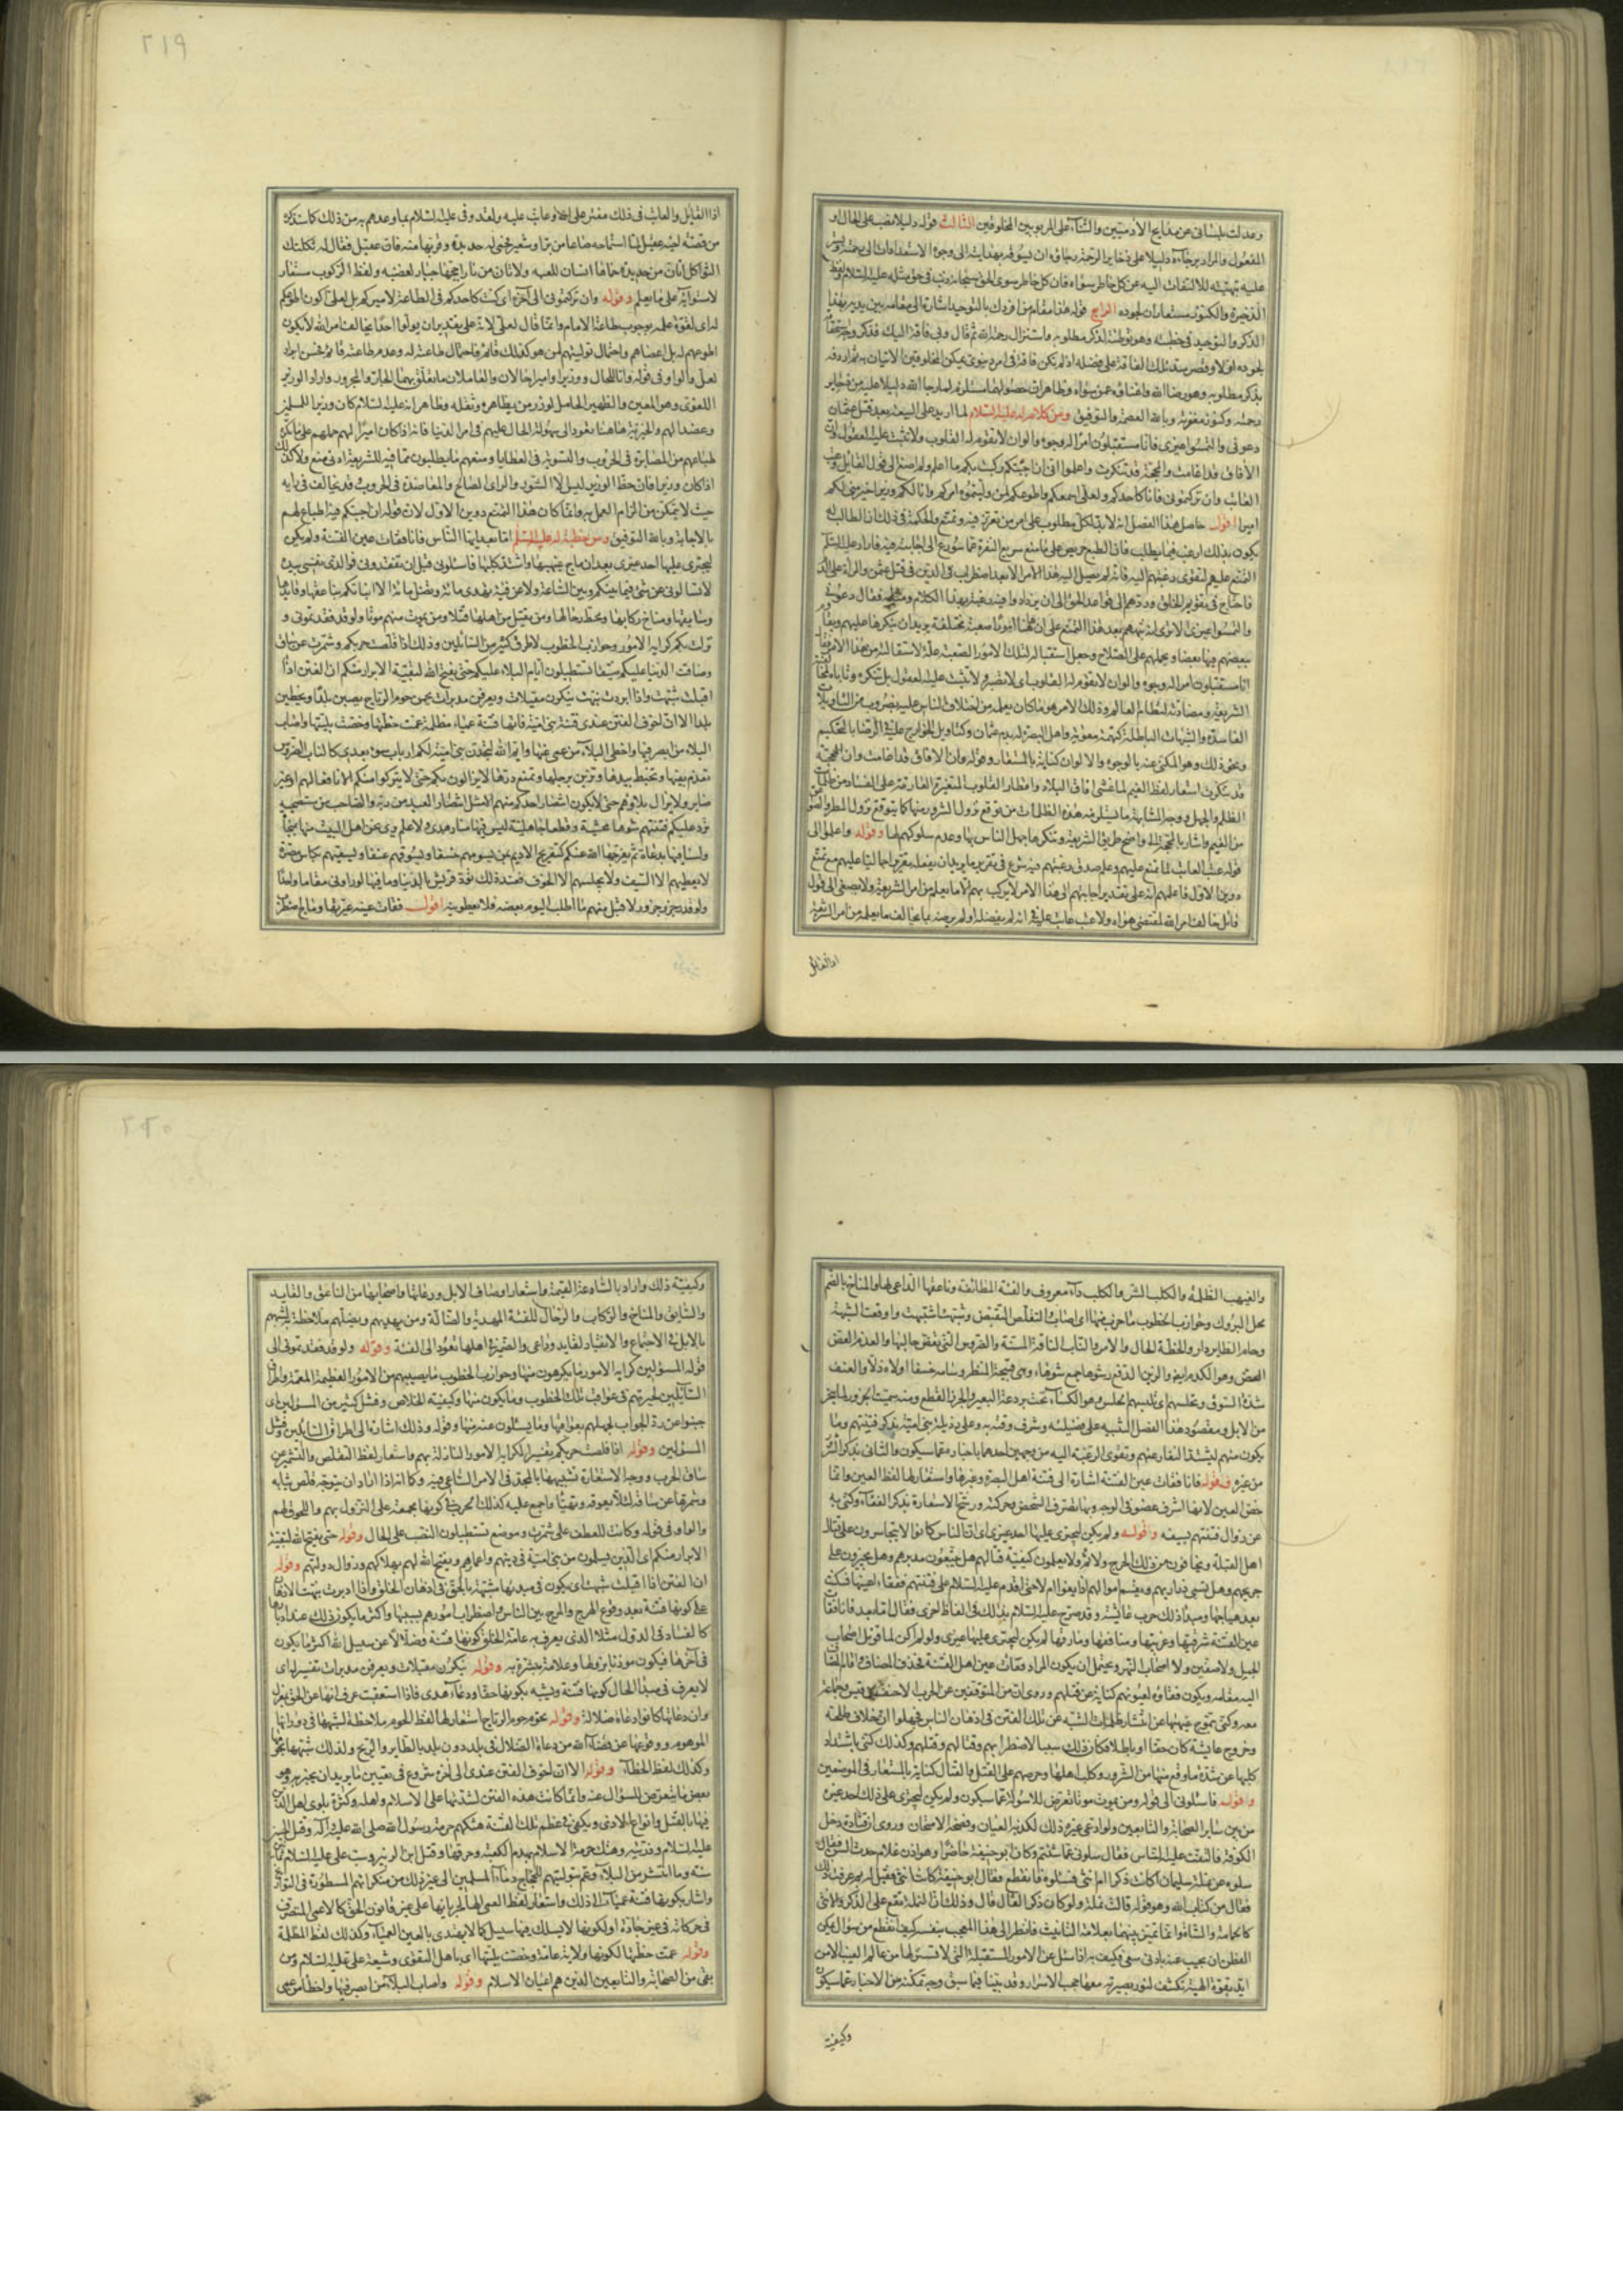 وعدلت بلسانى عن مدايح الآدميين والثناء على المربوبين المخلوقين الثالث قوله دليلا نصب على الحال او
المفعول والمراد برجاءه دليلا على ذخاير الرحمة رجاؤه ان يسوقه بهدايته الى وجوه الاستعدادات الى رحمته
عليه بتهيئته للالتفات اليه عن كل خاطر سواه فان كل خاطر سوى الحق سبحانه ذنب فى حق مثله عليه السلام ولفظ
الذخيرة والكنوز مستعاران لجوده الرابع قوله هذا مقام من افردك بالتوحيد اشارة الى مقامه بين يديه بهذا
الذكر والتوحيد فى خطبته وهو توطئة لذكر مطلوبه واستنزال رحمة الله ثم قال وبى فاقة اليك فذكر وجه استحقاقه
لجوده اولا وقصر سد تلك الفاقة على فضله اذ لم تكن فاقة فى امر دنيوى يمكن المخلوقين الاتيان به ثم اردفه
بذكر مطلوبه وهو رضا الله واغناؤه عمن سواه وظاهر ان حصولهما مستلزم لما رجا الله دليلا عليه من ذخاير
رحمته وكنوز مغفرته وبالله العصمة والتوفيق ومن كلام له عليه السلام لما اريد على البيعة بعد قتل عثمان
دعونى والتمسوا غيرى فانا مستقبلون امرا له وجوه والوان لا تقوم له القلوب ولا تثبت عليه العقول وان
الآفاق قد اغامت والمحجة قد تنكرت واعلموا انى ان اجبتكم ركبت بكم ما اعلم ولم اصغ الى قول القائل وعتب
العاتب وان تركتمونى فانا كاحدكم ولعلى اسمعكم واطوعكم لمن وليتموه امركم وانا لكم وزيرا خير منى لكم
اميرا اقول حاصل هذا الفصل انه لابد لكل مطلوب على امر من تعزز فيه وتمنع والحكمة فى ذلك ان الطالب له
يكون بذلك ارغب فيما يطلب فان الطبع حريص على ما منع سريع النفرة عما سورع الى اجابته فيه فاراد عليه السلام
التمنع عليهم لتقوى رغبتهم اليه فانه لم يصل اليه هذا الامر الا بعد اضطراب فى الدين فى قتل عثمن
فاحتاج فى تقويم الخلق وردهم الى قواعد الحق الى ان يزدادوا فيه رغبة بهذا الكلام ومثله فقال دعونى
والتمسوا غيرى الا ترى انه نبههم بعد هذا التمنع على ان ههنا امورا صعبة مختلفة يريد ان ينكرها عليهم
ببعضهم بعضا ويحملهم على الصلاح وجعل استقباله لتلك الامور الصعبة علة لاستقالته من هذا الامر فقال
انا مستقبلون امرا له وجوه والوان لا تقوم له القلوب اى لا تصبر ولا تثبت عليه العقول بل تنكره وتاباه لمخالفته
الشريعة ومضادته لنظام العالم وذلك الامر هو ما كان يعلمه من اختلاف الناس عليه بضروب من التاويلات
الفاسدة والشبهات الباطلة كتهمة معوية واهل البصرة له بدم عثمان وكتاويل الخوارج عليه الرضا بالتحكيم
ونحو ذلك وهو المكنى عنه بالوجوه والالوان كناية بالمستعار وقوله وان الآفاق قد اغامت وان المحجة
قد تنكرت استعار لفظ الغيم لما غشى آفاق البلاد واقطار القلوب المتغيرة الفارغة على الفساد من ظلمات
الظلم والجهل ووجه المشابهة ما يستلزمه هذه الظلمات من توقع نزول الشرور منها كما يتوقع نزول المطر والصواعق
من الغيم واشار بالمحجة الى واضح طريق الشريعة وتنكرها جهل الناس بها وعدم سلوكهم لها وقوله واعلموا الى
قوله عتب العاتب لما تمنع عليهم وعلم صدق رغبتهم فيه شرع فى تقرير ما يريد ان يفعله
دون الاول فاعلمهم انه على تقدير اجابتهم الى هذا الامر لا يركب بهم الا ما يعلم من امر الشريعة ولا يصغى الى قول
قائل خالف امر الله لمقتضى هواه ولا عتب عاتب عليه فى انه لم يفضله او لم يرضه بما يخالف ما يعلمه من امر الشريعة
اذ القائل
٢١٩
اذ القايل والعاتب فى ذلك مفتر على الله وعاتب عليه ولقد وفى عليه السلام بما وعدهم به من ذلك كما ستذكر
من قصته لاخيه عقيل لما استماحه صاعا من بر او شعير فحمى له حديدة وقربها منه فان عقيل فقال له ثكلتك
الثواكل اتان من حديدة حماها انسان للعبه ولا تان من نار اججها جبار لغضبه ولفظ الركوب مستعار
لاستوائه على ما يعلم وقوله وان تركتمونى الى آخره اى كنت كاحدكم فى الطاعة لاميركم بل لعلى اكون اطوعكم
له اى لقوة علمه بوجوب طاعة الامام وانما قال لعلى لانه على تقدير ان يولوا احدا يخالف امر الله لا يكون
اطوعهم له بل اعصاهم واحتمال توليتهم لمن هو كذلك قائم فاحتمال طاعته له وعدم طاعته قائم فحسن ايراد
لعل والواو فى قوله وانا للحال ووزيرا واميرا حالان والعامل ما تعلق بهما الجار والمجرور واراد الوزير
اللغوى وهو المعين والظهير الحامل لوزر من يظاهره وثقله وظاهر انه عليه السلام كان وزيرا للمسلمين
وعضدا لهم والخيرية هاهنا تعود الى سهولة الحال عليهم فى امر الدنيا فانه اذا كان اميرا لهم حملهم على ما تكره
طباعهم من المصابرة فى الحروب والتسوية فى العطايا ومنعهم ما يطلبون مما فيه للشريعة ادنى منع ولا كذلك
اذا كان وزيرا فان حظ الوزير ليس الا الشور والراى الصالح والمعاضدة فى الحروب وقد يخالف فى رايه
حيث لا يتمكن من الزام العمل به وانما كان هذا التمنع دون الاول لان قوله ان اجبتكم فيه اطماع لهم
بالاجابة وبالله التوفيق ومن خطبة له عليه السلام اما بعد ايها الناس فانا فقأت عين الفتنة ولم يكن
ليجترى عليها احد غيرى بعد ان ماج غيهبها واشتد كلبها فاسئلونى قبل ان تفقدونى فوالذى نفسى بيده
لا تسالونى عن شئ فيما بينكم وبين الساعة ولا عن فئة تهدى مائة وتضل مائة الا انباتكم بناعقها وقايدها
وسايقها ومناخ ركابها ومحط رحالها ومن يقتل من اهلها قتلا ومن يموت منهم موتا ولو قد فقدتمونى و
نزلت بكم كراية الامور وحوازب الخطوب لاطرق كثير من السائلين وذلك اذا قلصت حربكم وشمرت عن ساق
وضاقت الدنيا عليكم ضيقا تستطيلون ايام البلاء عليكم حتى يفتح الله لبقية الابرار منكم ان الفتن اذا
اقبلت شبهت واذا ادبرت نبهت ينكرن مقبلات ويعرفن مدبرات يحمن حوم الرياح يصبن بلدا ويخطين
بلدا الا ان اخوف الفتن عندى فتنة بنى امية فانها فتنة عمياء مظلمة عمت خطتها وخصت بليتها واصاب
البلاء من ابصر فيها واخطى البلاء من عمى عنها وايم الله لتجدن بنى امية لكم ارباب سوء بعدى كالناب الضروس
تعذم بفيها وتخبط بيدها وتزبن برجلها وتمنع درها لا يزالون بكم حتى لا يتركوا منكم الا نافعا لهم او غير
ضاير ولا يزال بلاؤهم حتى لا يكون انتصار احدكم منهم الا مثل انتصار العبد من ربه والصاحب من مستصحبه
ترد عليكم فتنتهم شوهاء مخشية وقطعا جاهلية ليس فيها منار هدى ولا علم يرى نحن اهل البيت منها بمنجاة
ولسنا فيها بدعاة ثم يفرجها الله عنكم كتفريج الاديم بمن يسومهم خسفا ويسوقهم عنفا ويسقيهم بكاس مصبرة
لا يعطيهم الا السيف ولا يحلسهم الا الخوف فعند ذلك تود قريش بالدنيا وما فيها لو يرونى مقاما واحدا
ولو قدر جزر جزور لاقبل منهم ما اطلب اليوم بعضه فلا يعطونيه اقول فقأت عينه عيرتها
والغيهب الظلمة والكلب الشر والكلب داء معروف والفئة الطائفة وناعقها الداعى لها والمناخ بالضم
محل البروك وحوازب الخطوب ما حزب منها اى اصاب والتقلص التقبض وشبهت اشتبهت واوقعت الشبهة
وحام الطاير دار والخطة الحال والامر والناب الناقة المسنة والضروس التى تعض حالبها والعذم العض
والزبن الدفع وشوها جمع شوهاء وهى قبيحة المنظر وسامه خسفا اولاه ذلا والعنف
شدة السوق ويحلسهم يلبسهم الحلس وهو الكساء تحت بردعة البعير والجزر القطع ومنه سميت الجزور لما ينحر
من الابل ومقصود هذا الفصل التنبيه على فضيلته وشرف وقته به وعلى رذيلة بنى امية بذكر فتنتهم وما
يكون منهم ليشتد النفار عنهم وتقوى الرغبة اليه من وجهين احدهما باخباره عما سيكون والثانى بذكر الشر
من غيره فقوله فانا فقأت عين الفتنة اشارة الى فتنة اهل البصرة وغيرها واستعار لها لفظ العين وانما
خص العين لانها اشرف عضو فى الوجه وبها تصرف الشخص وحركته ورشح الاستعارة بذكر الفقاء وكنى به
عن زوال فتنتهم بسيفه وقوله ولم يكن ليجترى عليها احد غيرى اى ان الناس كانوا لا يتجاسرون على قتال
اهل القبلة ويخافون من ذلك الحرج والاثم ولا يعلمون كيفية قتالهم هل يتبعون مدبرهم وهل يجهزون على
جريحهم وهل تسبى ذراريهم ويقسم اموالهم اذا بغوا ام لا حتى اقدم عليه السلام على فتنتهم ففقاء عينها فسكنت
بعد هياجها ومبدأ ذلك حرب عائشة وقد صرح عليه السلام بذلك فى الفاظ اخرى فقال اما بعد فانا فقأت
عين الفتنة شرقيها وغربيها ومنافقها ومارقها لم يكن ليجترى عليها غيرى ولو لم اكن لما قوتل اصحاب
الجمل ولا صفين ولا اصحاب النهر ويحتمل ان يكون المراد فقأت عين اهل الفتنة فحذف المضاف واقام المضاف
اليه مقامه ويكون فقاؤه لعيونهم كناية عن قتلهم وروى ان من المتوقفين عن الحرب الاحنف بن قيس وجماعة
معه وكنى بتموج غيهبها عن انتشار ظلمات الشبه عن تلك الفتن فى اذهان الناس فجهلوا ان خلاف طلحة
وخروج عايشة كان حقا او باطلا فكان ذلك سببا لاضطرابهم وقتالهم وقتلهم وكذلك كنى باشتداد
كلبها عن شدة ما وقع منها من الشرور وكلب اهلها وحرصهم على القتل والقتال كناية بالمستعار فى الموضعين
وقوله فاسئلونى الى قوله ومن يموت موتا تعرض للاسولة عما سيكون ولم يكن ليجترى على ذلك احد غيره
من بين ساير الصحابة والتابعين ولو ادعى غيره ذلك لكذبه العيان وفضحه الامتحان وروى ان قتادة دخل
الكوفة فالتفت عليه الناس فقال سلونى عما شئتم وكان ابو حنيفة حاضرا وهو اذن غلام حدث السن فقال
سلوه عن نملة سليمان اكانت ذكرا ام انثى فسئلوه فانقطع فقال ابو حنيفة كانت انثى فقيل له بم عرفت ذلك
فقال من كتاب الله وهو قوله قالت نملة ولو كان ذكرا لقال قال وذلك ان النملة تقع على الذكر والانثى
كالحمامة والشاة وانما تميز بينهما بعلامة التانيث فانظر الى هذا المعجب بنفسه كيف انقطع من سؤال يمكن
الفطن ان يجيب عنه بادنى سعى فكيف به اذا سئل عن الامور المستقبلة التى لا قسير لها من عالم الغيب الا من
ايد بقوة الهية تكشف لنور بصيرته معها حجب الاسرار وقد بينا فيما سبق وجه تمكنه من الاخبار عما سيكون
وكيفية
٢٢٠
وكيفية ذلك واراد بالساعة القيمة واستعار اوصاف الابل ورعاتها واصحابها من الناعق والقايد
والسايق والمناخ والركاب والرحال للفئة المهدية والضالة ومن يهديهم ويضلهم ملاحظة لشبههم
بالابل فى الاجتماع والانقياد لقايد وداعى والضمير فى اهلها تعود الى الفئة وقوله ولو قد فقدتمونى الى
قوله المسؤلين كراية الامور ما يكرهون منها وحوازب الخطوب ما يصيبهم من الامور العظيمة المهمة واطراق
السائلين لحيرتهم فى عواقب تلك الخطوب وما يكون منها وكيفية الخلاص وفشل كثير من المسؤلين اى
جبنوا عن رد الجواب لجهلهم بعواقبها وما يسئلون عنه منها وقوله وذلك اشارة الى اطراق السايلين وفشل
المسؤلين وقوله اذا قلصت حربكم تفسير لكرايه الامور النازلة بهم واستعار لفظ التقلص والتشمير عن
ساق للحرب ووجه الاستعارة تشبيهها بالمجد فى الامر الساعى فيه وكما انه اذا اراد ان يتوجه قلص ثيابه
وشمرها عن ساقه لئلا تعوقه وتهيا واجمع عليه كذلك الحرب فى كونها مجتمعة على النزول بهم واللحوق لهم
والواو فى قوله وكانت للعطف على شمرت وموضع تستطيلون النصب على الحال وقوله حتى يفتح الله لبقية
الابرار منكم اى الذين يسلمون من بنى امية فى دينهم واعمارهم ويفتح الله لهم بهلاكهم وزوال دولتهم وقوله
ان الفتن اذا اقبلت شبهت اى يكون فى مبدئها مشتبهة بالحق فى اذهان الخلق واذا ادبرت نبهت الاذهان
على كونها فتنة بعد وقوع الهرج والمرج بين الناس واضطراب امورهم بسببها واكثر ما يكون ذلك عند ادبارها
كالفساد فى الدول مثلا الذى يعرف به عامة الخلق كونها فتنة وضلالا عن سبيل الله اكثر ما يكون
فى آخرها فيكون موذنا بزوالها وعلامة مبشرة به وقوله ينكرن مقبلات ويعرفن مدبرات تفسير له اى
لا يعرف فى مبدأ الحال كونها فتنة ويشبه بكونها حقا ودعاء هدى فاذا استعقبت عرف انها عن الحق بمعزل
وان دعاتها كانوا دعاة ضلالة وقوله يحمن حوم الرياح استعار لها لفظ الحوم ملاحظة لشبهها فى دورانها
الموهوم ووقوعها عن قضاء الله من دعاة الضلال فى بلد دون بلد بالطاير والريح ولذلك شبهها بحومها
وكذلك لفظ الخطاء وقوله الا ان اخوف الفتن عندى الى آخره شروع فى تعيين ما يريد ان يخبر به وهو
بعض ما تعرض للسؤال عنه وانما كانت هذه الفتن لشدتها على الاسلام واهله وكثرة بلوى اهل الدين
فيها بالقتل وانواع الاذى ويكفى فى عظم تلك الفتنة هتكهم حرمة رسول الله صلى الله عليه وآله وقتل الحسين
عليه السلام وذريته وهتك حرمة الاسلام بهدم الكعبة وحرقها وقتل ابن الزبير وسب على عليه السلام ثمانين
سنة وما انتشر من البلاء وعم بتوليتهم للحجاج دماء المسلمين الى غير ذلك من منكراتهم المسطورة فى التواريخ
واشار بكونها فتنة عمياء الى ذلك واستعار لفظ العمى لها لجريانها على غير قانون الحق كالاعمى المتصرف
فى حركاته فى غير جادة او لكونها لا يسلك فيها سبيل كما لا يهتدى بالعين العمياء وكذلك لفظ المظلمة
وقوله عمت خطتها لكونها ولاية عامة وخصت بليتها اى باهل التقوى وشيعة على عليه السلام ومن
بقى من الصحابة والتابعين الذين هم اعيان الاسلام وقوله واصاب البلاء من ابصر فيها واخطأ من عمى